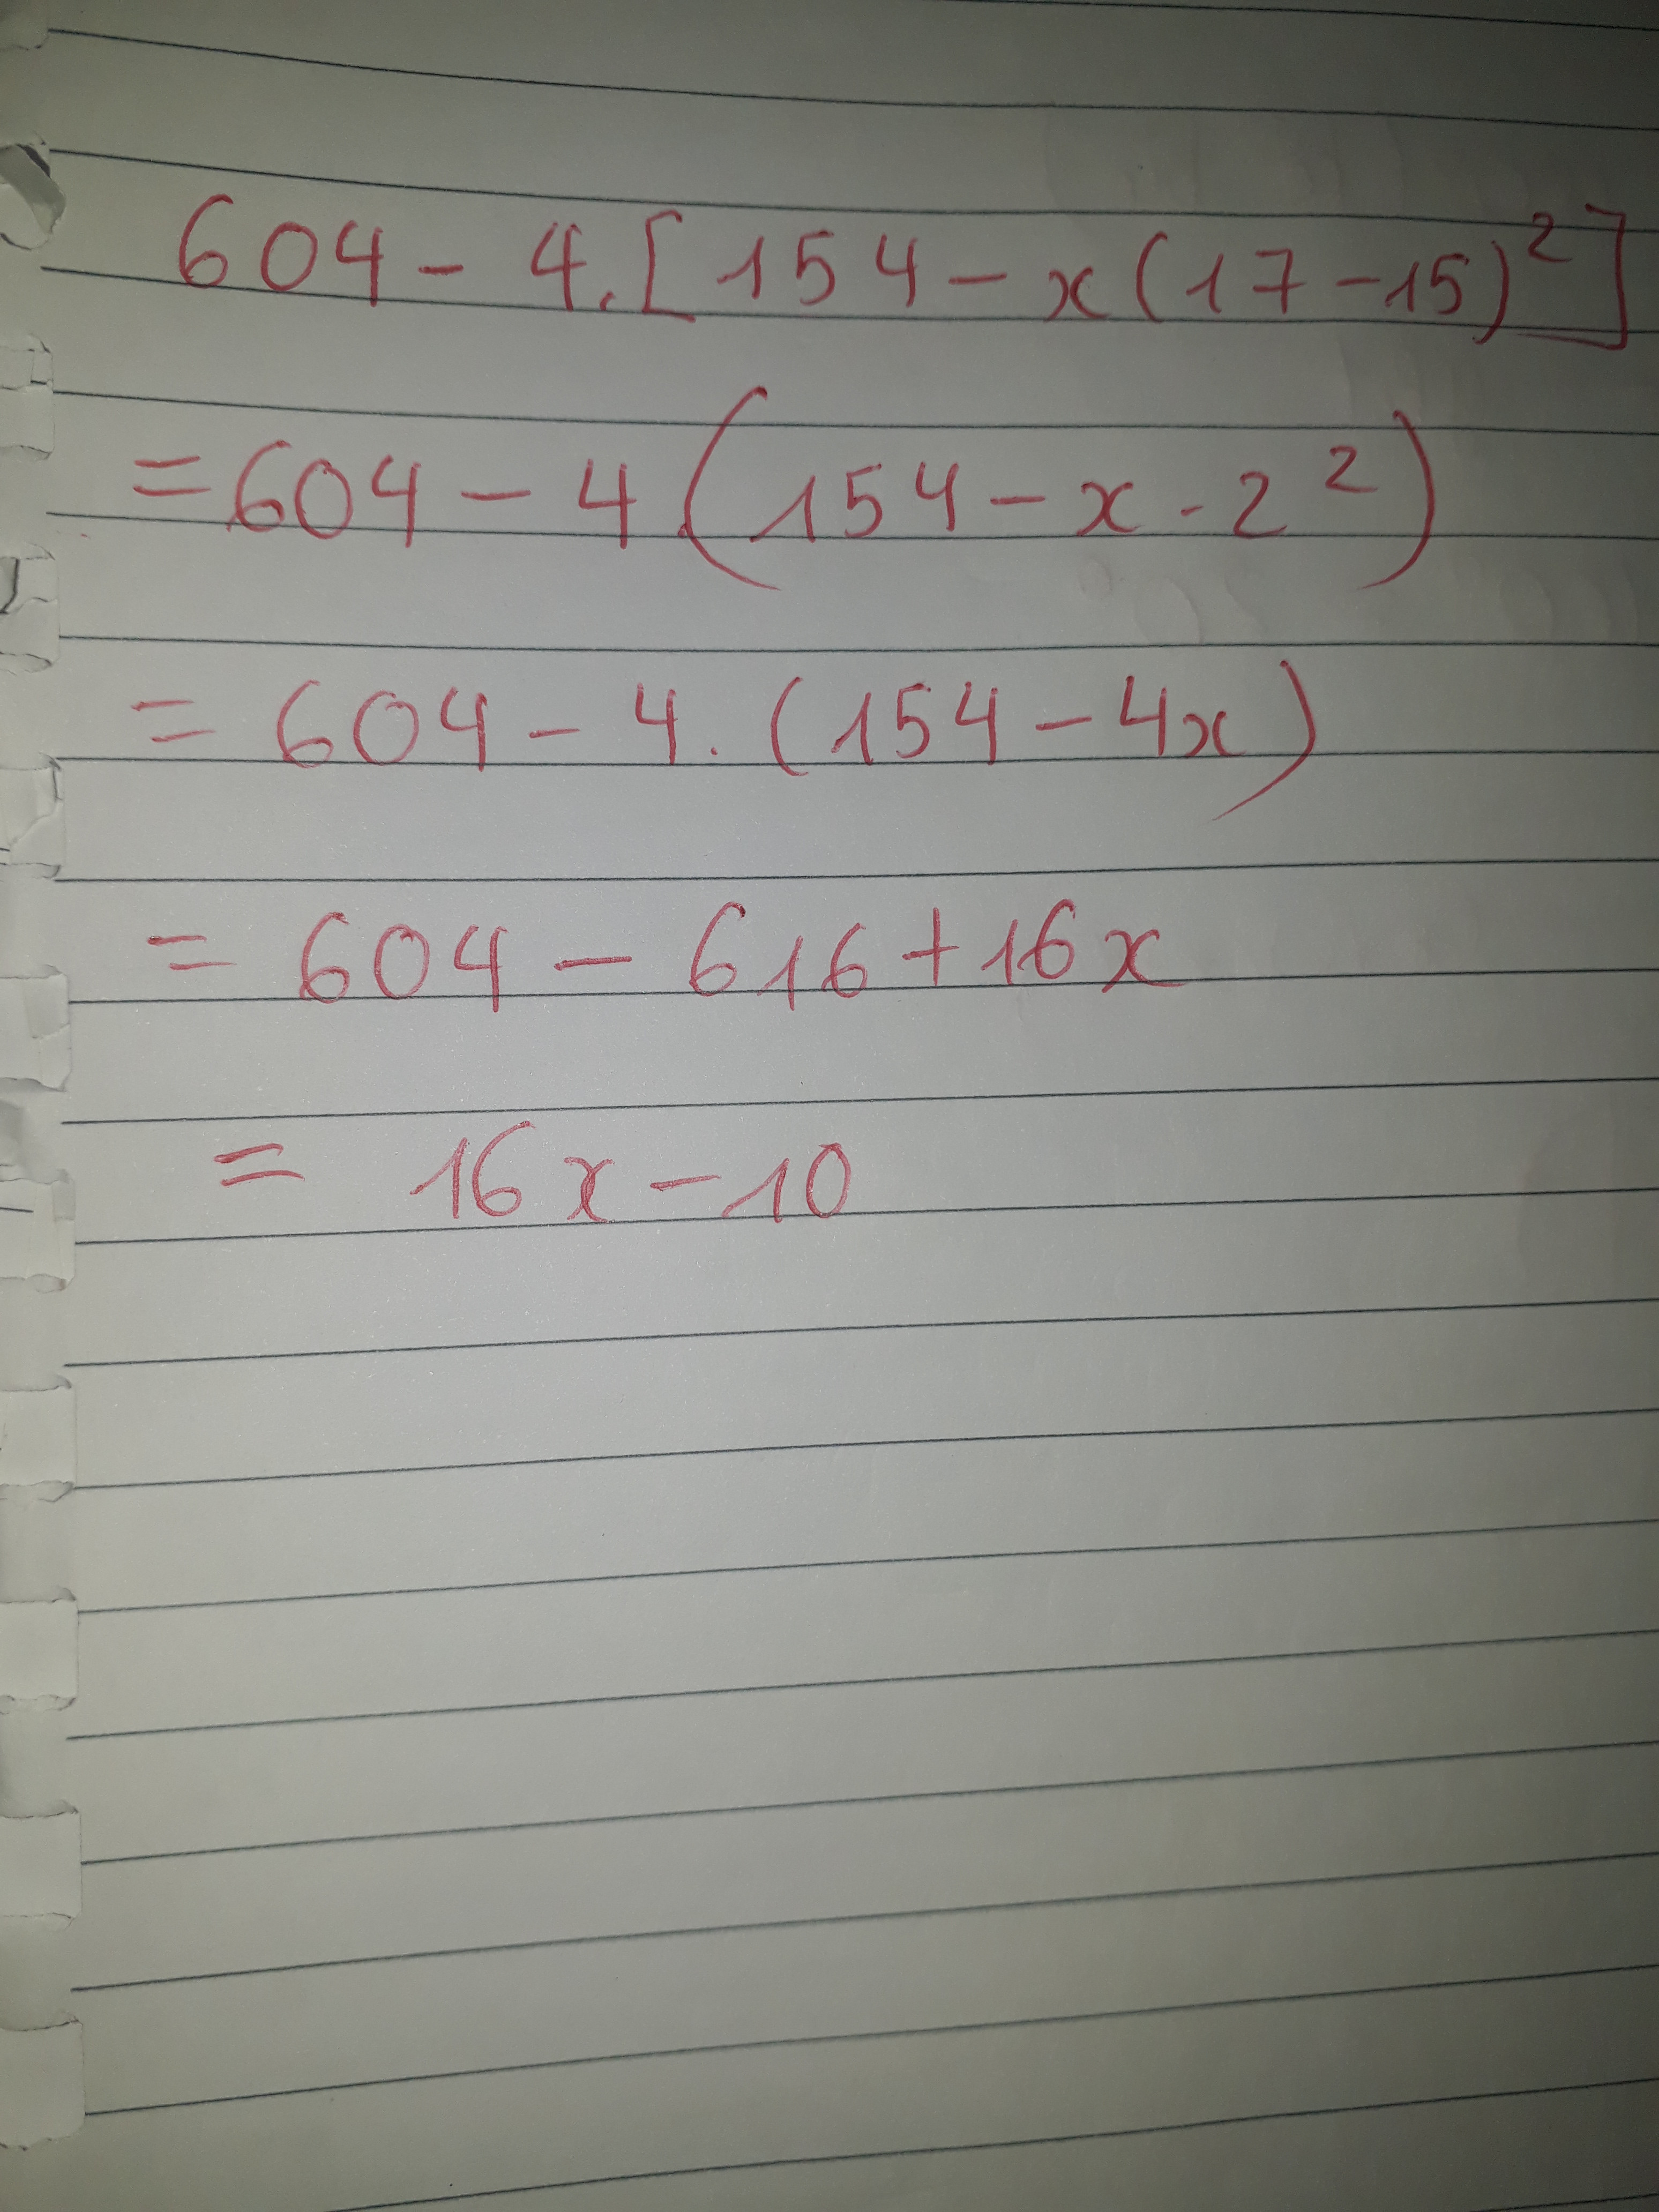 604 - 4.[154 - x(17-15)²]
= 604 - 4.(154 - x . 2²)
= 604 - 4. (154 - 4x)
= 604 - 616 + 16x
= 16x - 10